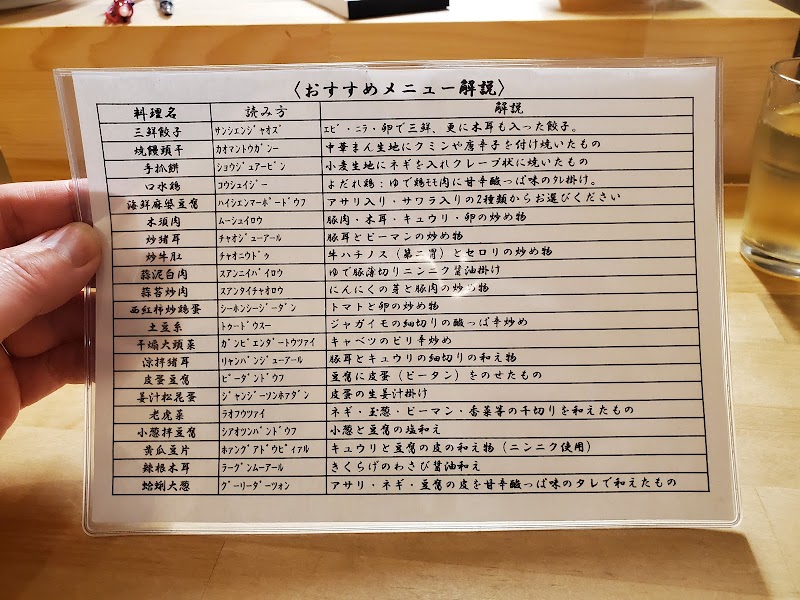 〈おすすめメニュー解説〉
料理名 読み方 解説
三鮮餃子 サンシエンジャオズ エビ・ニラ・卵で三鮮、更に木耳も入った餃子。
焼饅頭干 カオマントウガンー 中華まん生地にクミンや唐辛子を付け焼いたもの
手抓餅 ショウジュアービン 小麦生地にネギを入れクレープ状に焼いたもの
口水鶏 コウシュイジー よだれ鶏：ゆで鶏モモ肉に甘辛酸っぱ味のタレ掛け。
海鮮麻婆豆腐 ハイシエンマーボードウフ アサリ入り・サワラ入りの2種類からお選びください
木須肉 ムーシュイロウ 豚肉・木耳・キュウリ・卵の炒め物
炒猪耳 チャオジューアール 豚耳とピーマンの炒め物
炒牛肚 チャオニウドゥ 牛ハチノス（第二胃）とセロリの炒め物
蒜泥白肉 スアンニイバイロウ ゆで豚薄切りニンニク醤油掛け
蒜苔炒肉 スアンタイチャオロウ にんにくの芽と豚肉の炒め物
西紅柿炒鶏蛋 シーホンシージーダン トマトと卵の炒め物
土豆糸 トゥードウスー ジャガイモの細切りの酸っぱ辛炒め
干煸大頭菜 ガンビェンダートウツァイ キャベツのピリ辛炒め
涼拌猪耳 リャンバンジューアール 豚耳とキュウリの細切りの和え物
皮蛋豆腐 ピーダンドウフ 豆腐に皮蛋（ピータン）をのせたもの
姜汁松花蛋 ジャンジーソンホァダン 皮蛋の生姜汁掛け
老虎菜 ラオフウツァイ ネギ・玉葱・ピーマン・香菜等の千切りを和えたもの
小葱拌豆腐 シアオツンバンドウフ 小葱と豆腐の塩和え
黄瓜豆片 ホァングアドウピィアル キュウリと豆腐の皮の和え物（ニンニク使用）
辣根木耳 ラーグンムーアール きくらげのわさび醤油和え
蛤蜊大葱 グーリーダーツォン アサリ・ネギ・豆腐の皮を甘辛酸っぱ味のタレで和えたもの